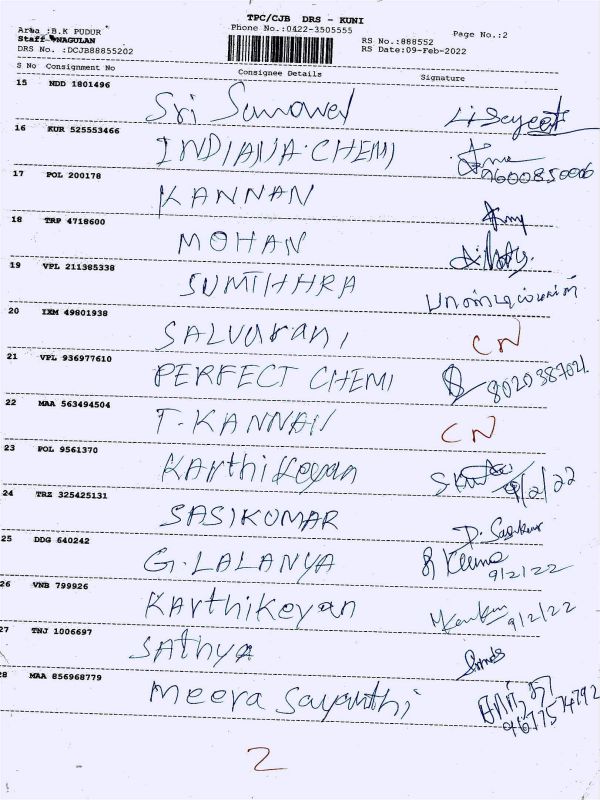 TPC/CJB DRS - KUNI
Area :B.K PUDUR Phone No.:0422-3505555 Page No.:2
Staff :NAGULAN RS No.:888552
DRS No. :DCJB88855202 RS Date:09-Feb-2022
S No Consignment No Consignee Details Signature
15 NDD 1801496
Sri
16 KUR 525553466
INDIANA.CHEMI 9600850006
17 POL 200178
KANNAN
18 TRP 4718600
MOHAN
19 VPL 211385338
SUMITHHRA
20 IXM 49801938
SALVarani CN
21 VPL 936977610
PERFECT CHEMI
22 MAA 563494504
T.KANNAN CN
23 POL 9561370
KArthiKeyan 9/2/22
24 TRZ 325425131
SASIKUMAR
25 DDG 640242
G.LALANYA 9/2/22
26 VNB 799926
KArthiKeyan 9/2/22
27 TNJ 1006697
SAthyA
28 MAA 856968779
meera
2